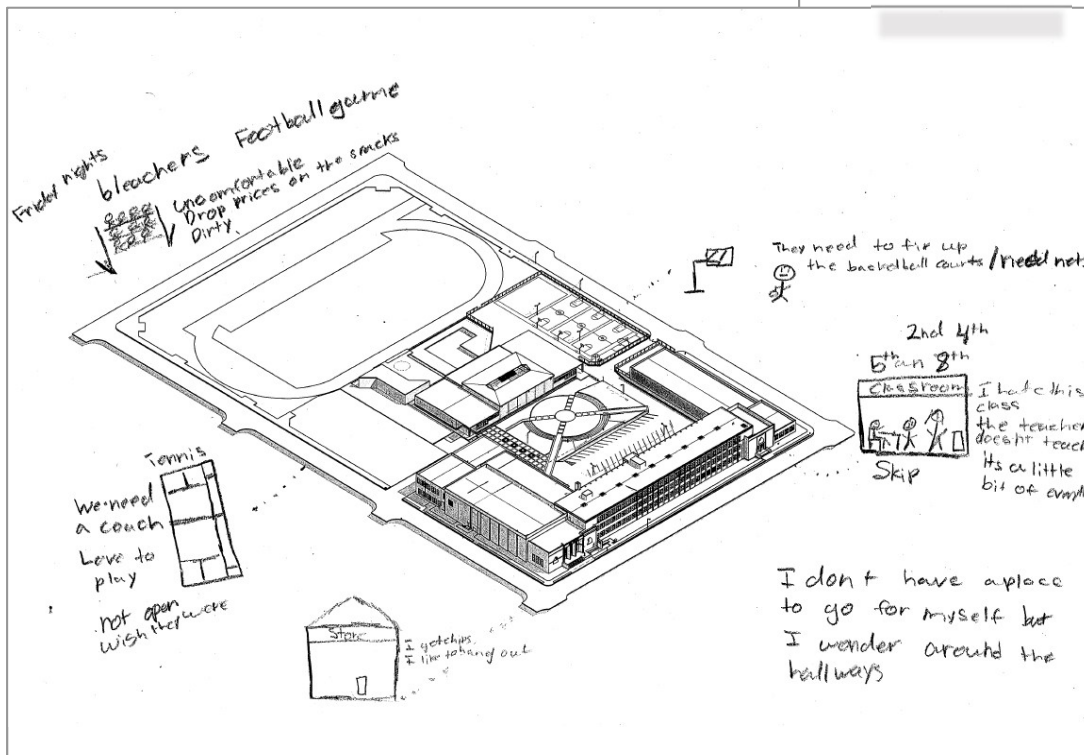 Friday nights
bleachers Football game
uncomfortable
Drop prices on the snacks
Dirty.
They need to fix up
the basketball courts / need net
2nd 4th
5th an 8th
classroom
I hate this
class
the teacher
doesn't teach
Its a little
bit of
Skip
Tennis
We need
a coach
Love to
play
not open
wish they were
Store
I get chips
I like to hang out
I don't have a place
to go for myself but
I wonder around the
hallways